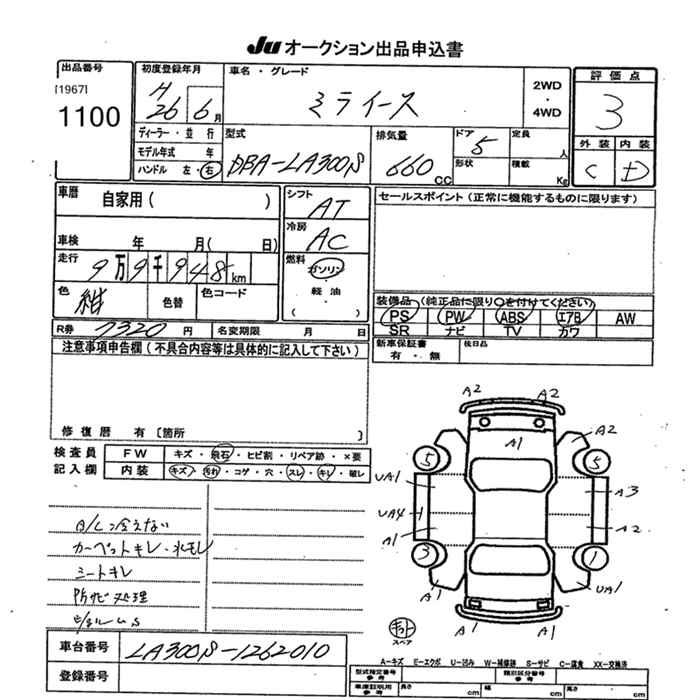 Ju オークション出品申込書
出品番号
[1967]
1100
初度登録年月
H
26 6月
車名・グレード
ミライース
2WD
・
4WD
評価点
3
外装 内装
C D
ディーラー・並行
モデル年式 年
ハンドル 左・右
型式
DBA-LA300S
排気量
660
CC
ドア
5
形状
定員
人
積載
Kg
車歴 自家用( )
車検 年 月( 日)
走行 9万9千948km
色 紺 色替 色コード
シフト
AT
冷房
AC
燃料
ガソリン
・
軽油
・
( )
セールスポイント(正常に機能するものに限ります)
装備品(純正品に限り○を付けてください)
PS PW ABS エアB AW
SR ナビ TV カワ
新車保証書
有・無
後日品
R券 7320 円 名変期限 月 日
注意事項申告欄(不具合内容等は具体的に記入して下さい)
修復歴 有〔箇所 〕
検査員
記入欄
FW キズ・飛石・ヒビ割・リペア跡・×要
内装 キズ・汚れ・コゲ・穴・スレ・キレ・破レ
A/C冷えない
カーペットキレ・水モレ
シートキレ
防サビ処理
A2 A2
A1
5 5
A2
UA1
A3
UA4 1
A2
A1
3 1
A1
UA1
A1 A1
キット
スペア
車台番号 LA300S-1262010
登録番号
A-キズ E-エクボ U-凹み W-補修跡 S-サビ C-腐食 XX-交換済
型式指定番号
参考
類別区分番号
参考
車庫証明用
参考
長さ cm 幅 cm 高さ cm